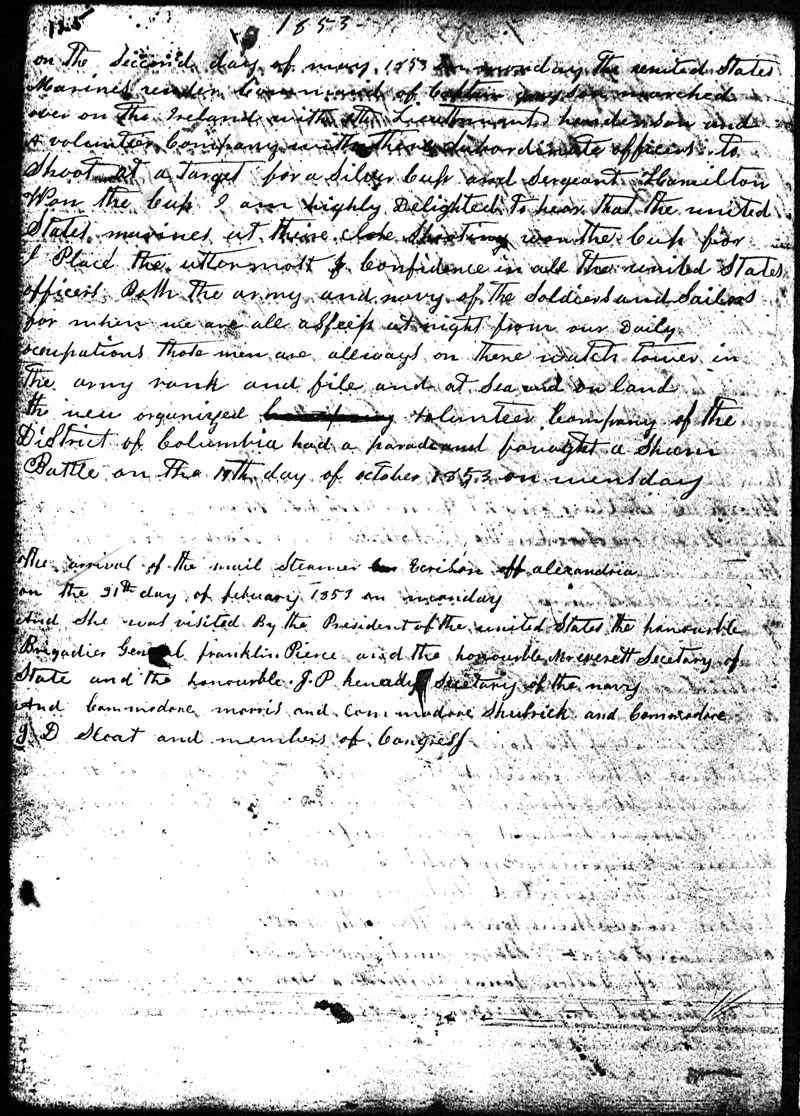 125 1853
on The Second day of may 1853 on monday The united States
Marines under Command of Captain grayson marched
over on The Ireland with Lieuttenant henderson and
a volunteer Company with there Subordinate officers to
Shoot at a Target for a Silver Cup and Sergeant Hamilton
Won the Cup I am highly Delighted to hear that the united
States marines at there Shooting won the Cup for
I Place the uttermost of Confidence in all The united States
officers Both the army and navy of the Soldiers and Sailors
for when we are all asleep at night from our Daily
occupations those men are allways on there watch tower in
The army rank and file and at Sea and on land
the new organized volunteer Company of the
District of Columbia had a parade and fought a Sham
Battle on the 19th day of october 1853 on wensday
the arrival of the mail Steamer Ericson off alexandria
on the 21th day of february 1853 on monday
And She was visited By the President of the united States the honourble
Brigadier General franklin Pierce and the honourble Mr everett Secetary of
State and the honourble J. P. kenedy Secetary of the navy
And Commodore morris and Commodore Shubrick and Commodore
J D Scoat and members of Congress